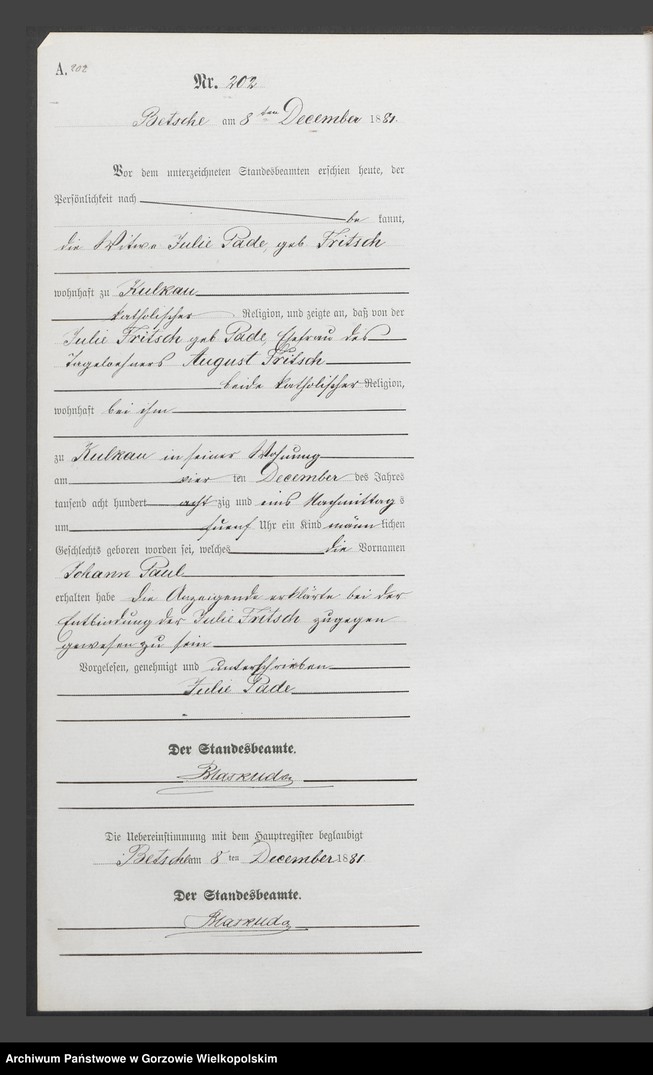 A. 202
Nr. 202
Betsche am 8 ten December 1881.
Vor dem unterzeichneten Standesbeamten erschien heute, der
Persönlichkeit nach
be kannt,
die Witwe Julie Pade, geb Fritsch
wohnhaft zu Kulkau
katholischer Religion, und zeigte an, daß von der
Julie Fritsch geb Pade, Ehefrau des
Tageloehners August Fritsch
beide katholischer Religion,
wohnhaft bei ihm
zu Kulkau in seiner Wohnung
am vier ten December des Jahres
tausend acht hundert acht zig und eins Nachmittag s
um fuenf Uhr ein Kind männ lichen
Geschlechts geboren worden sei, welches die Vornamen
Johann Paul
erhalten habe Die Anzeigende erklärte bei der
Entbindung der Julie Fritsch zugegen
gewesen zu sein
Vorgelesen, genehmigt und unterschrieben
Julie Pade
Der Standesbeamte.
Die Uebereinstimmung mit dem Hauptregister beglaubigt
Betsche am 8 ten December 1881
Der Standesbeamte.
Archiwum Państwowe w Gorzowie Wielkopolskim